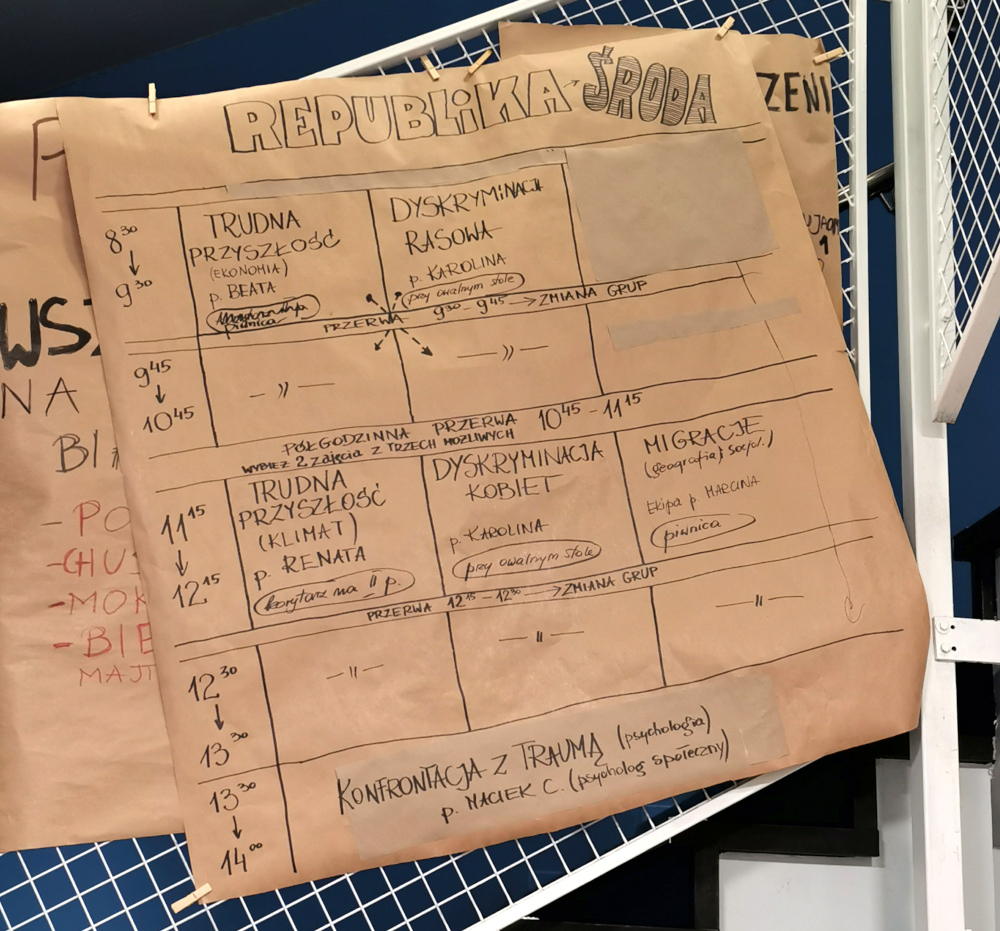 REPUBLIKA - ŚRODA
8³⁰ ↓ 9³⁰
TRUDNA
PRZYSZŁOŚĆ
(EKONOMIA)
p. BEATA
piwnica
DYSKRYMINACJA
RASOWA
p. KAROLINA
przy owalnym stole
PRZERWA 9³⁰ - 9⁴⁵ → ZMIANA GRUP
9⁴⁵ ↓ 10⁴⁵
— )) —
— )) —
PÓŁGODZINNA PRZERWA 10⁴⁵ - 11¹⁵
WYBIEZ 2 zajęcia Z TRZECH MOŻLIWYCH
11¹⁵ ↓ 12¹⁵
TRUDNA
PRZYSZŁOŚĆ
(KLIMAT)
p. RENATA
korytarz na II p.
DYSKRYMINACJA
KOBIET
p. KAROLINA
przy owalnym stole
MIGRACJE
(geografia i socjol.)
Ekipa p. MARCINA
piwnica
PRZERWA 12¹⁵ - 12³⁰ → ZMIANA GRUP
12³⁰ ↓ 13³⁰
— )) —
— )) —
— )) —
13³⁰ ↓ 14⁰⁰
KONFRONTACJA Z TRAUMĄ (psychologia)
p. MACIEK C. (psycholog społeczny)
WSZ
NA
- PO
- CHUS
- MOK
- BIE
MAJT
ZENI
1